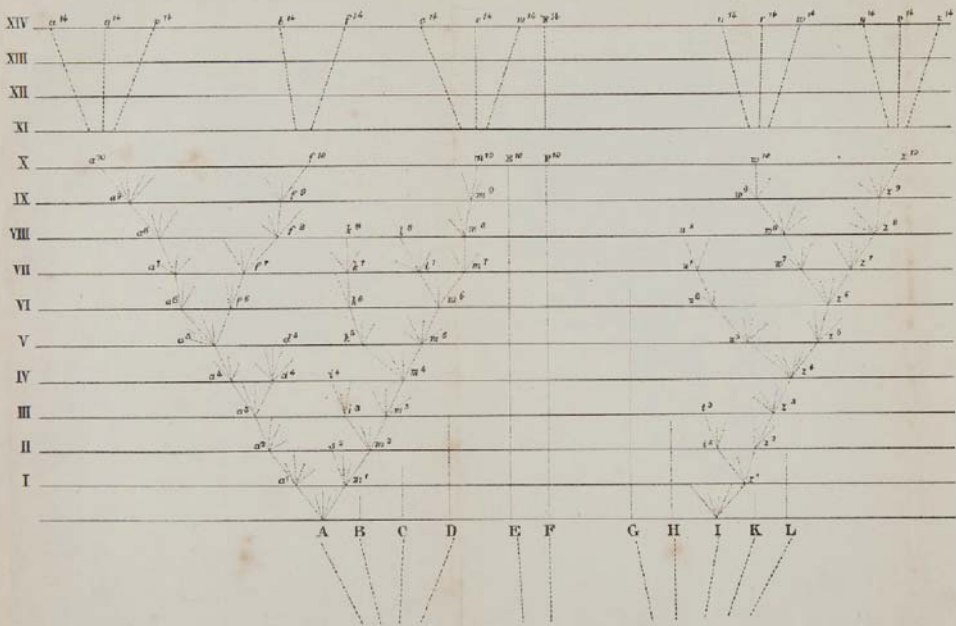 XIV a¹⁴ q¹⁴ p¹⁴ b¹⁴ f¹⁴ o¹⁴ e¹⁴ m¹⁴ F¹⁴ n¹⁴ r¹⁴ w¹⁴ y¹⁴ v¹⁴ z¹⁴
XIII
XII
XI
X a¹⁰ f¹⁰ m¹⁰ E¹⁰ F¹⁰ w¹⁰ z¹⁰
IX a⁹ f⁹ m⁹ w⁹ z⁹
VIII a⁸ f⁸ k⁸ l⁸ m⁸ u⁸ w⁸ z⁸
VII a⁷ f⁷ k⁷ l⁷ m⁷ u⁷ w⁷ z⁷
VI a⁶ f⁶ k⁶ m⁶ u⁶ z⁶
V a⁵ d⁵ k⁵ m⁵ u⁵ z⁵
IV a⁴ d⁴ i⁴ m⁴ z⁴
III a³ i³ m³ t³ z³
II a² s² m² t² z²
I a¹ m¹ z¹
A B C D E F G H I K L